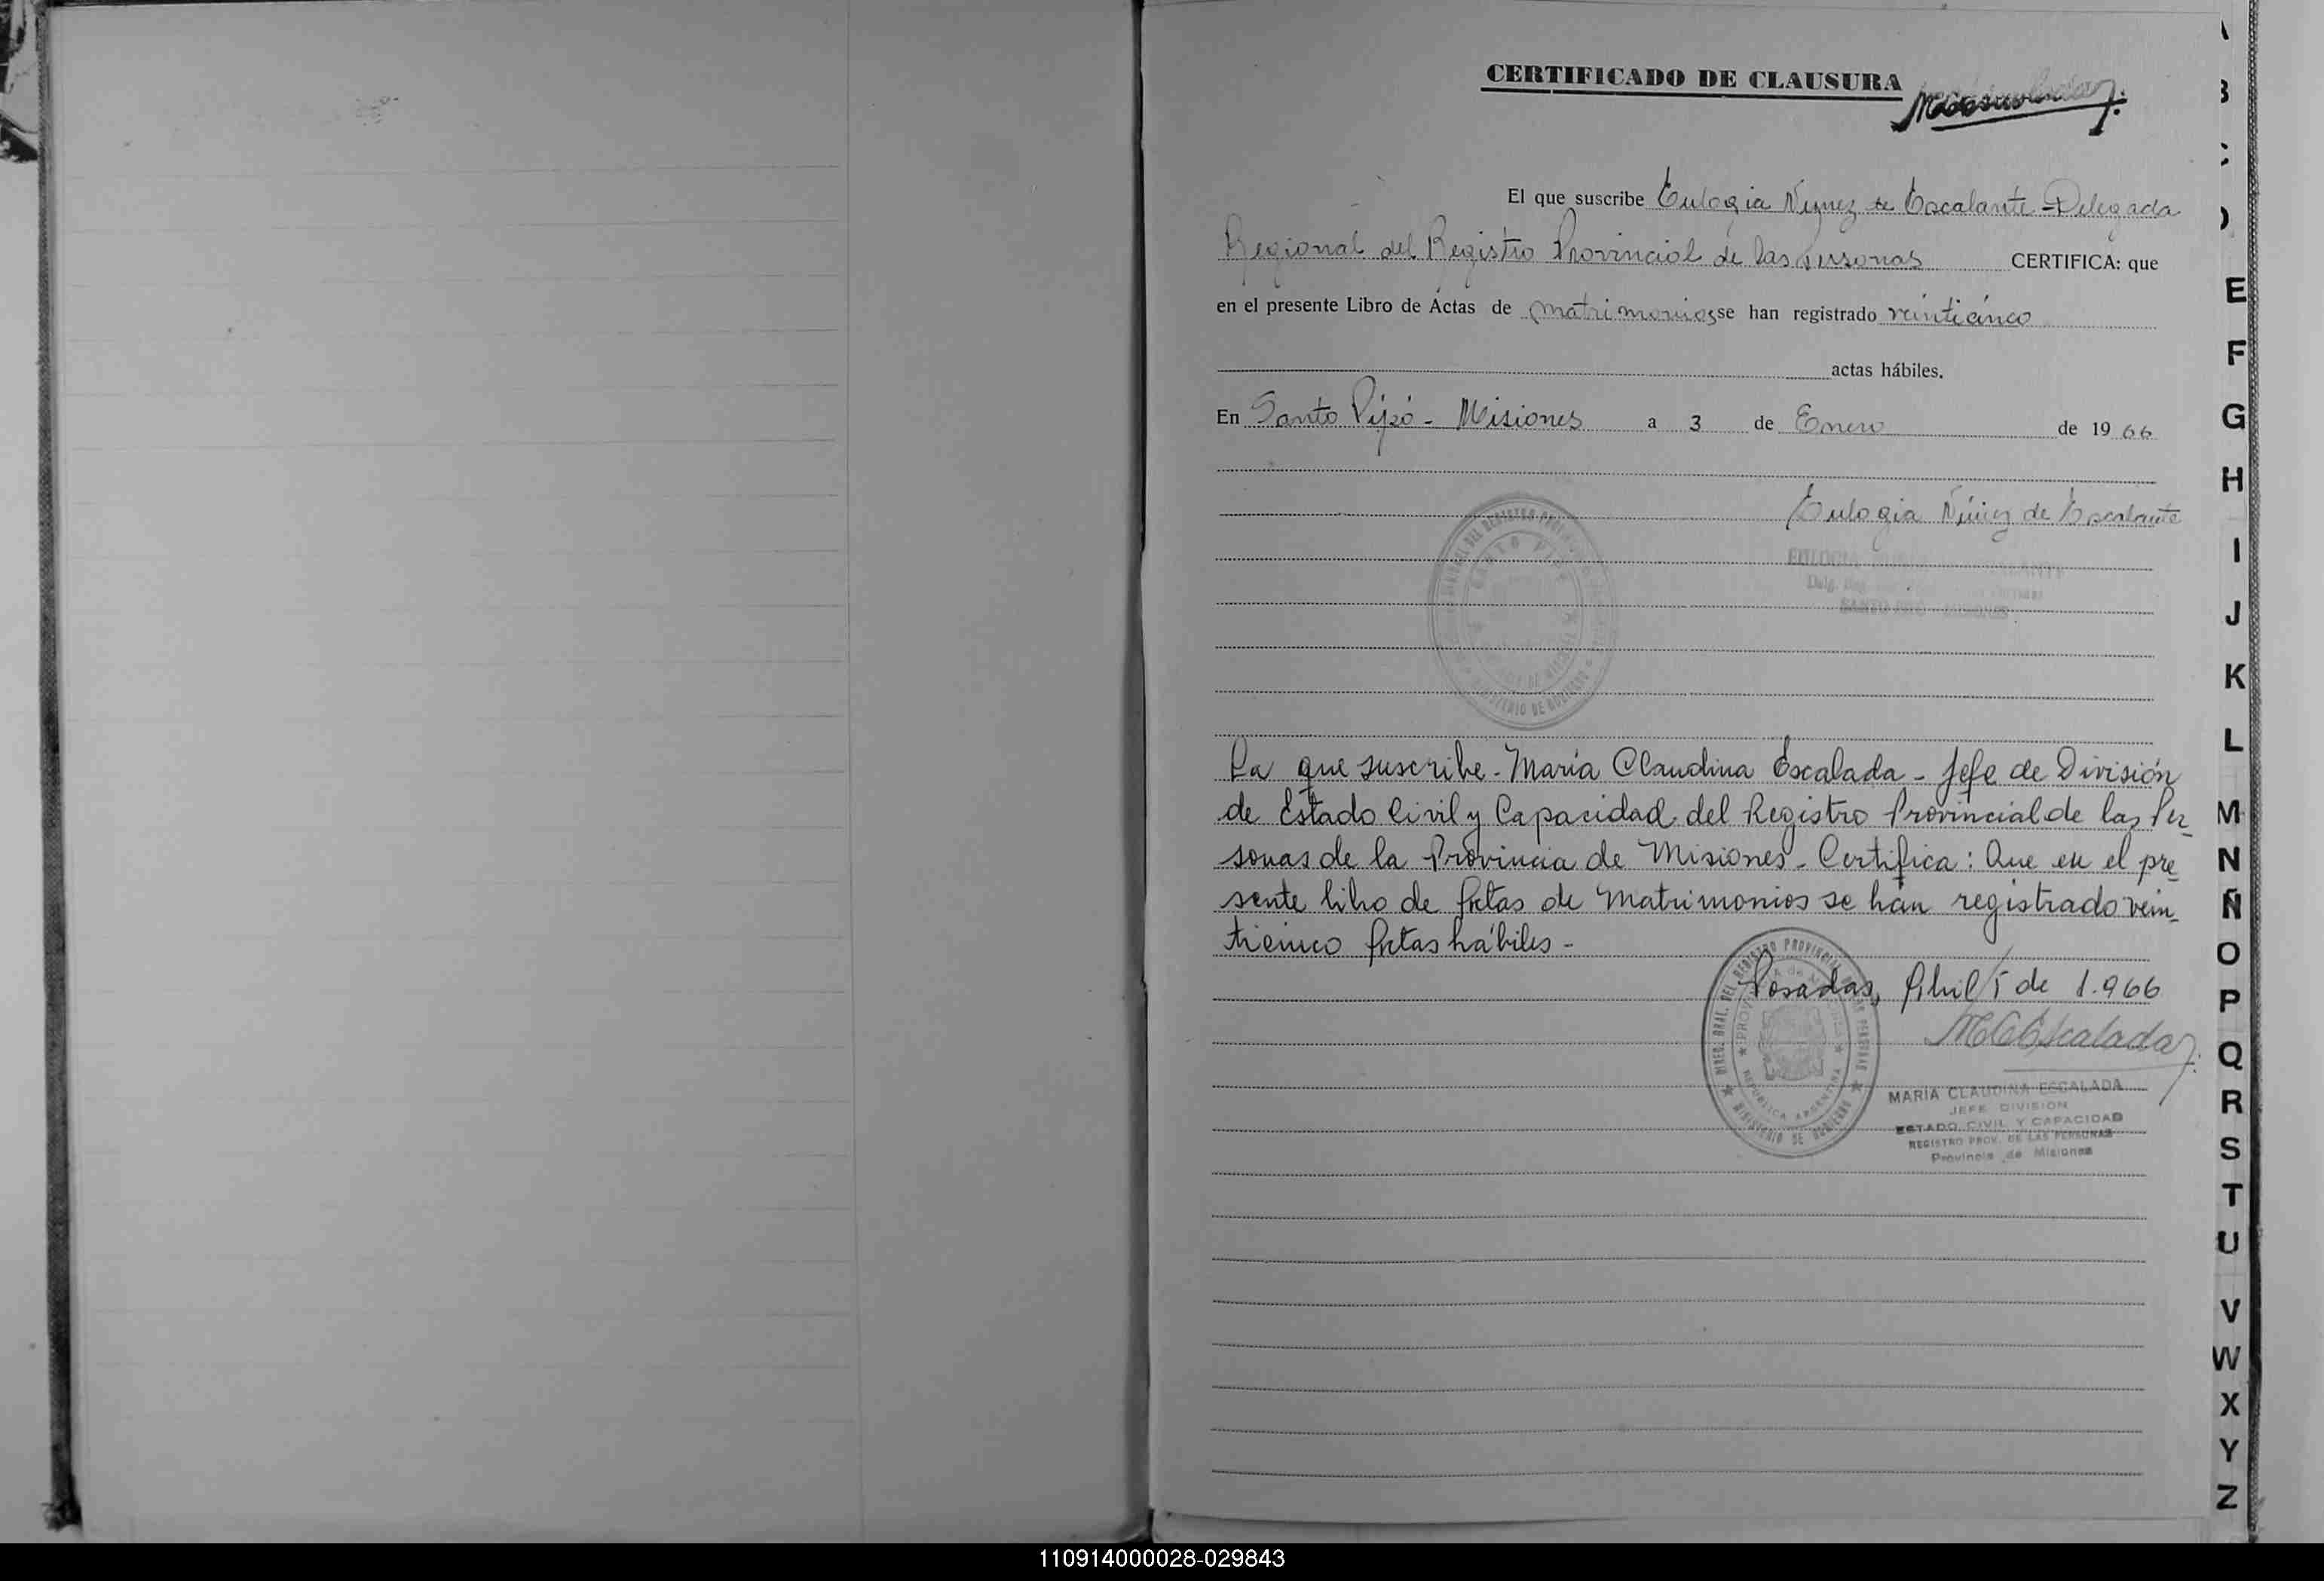 CERTIFICADO DE CLAUSURA
El que suscribe Eulogia Núñez de Escalante - Delegada
Regional del Registro Provincial de las Personas CERTIFICA: que
en el presente Libro de Actas de Matrimonios se han registrado veinticinco
actas hábiles.
En Santo Pipó - Misiones a 3 de Enero de 1966
Eulogia Núñez de Escalante
SANTO PIPO - MISIONES
La que suscribe - María Claudina Escalada - Jefe de División
de Estado Civil y Capacidad del Registro Provincial de las Per-
sonas de la Provincia de Misiones - Certifica: Que en el pre-
sente libro de Actas de Matrimonios se han registrado vein-
ticinco Actas hábiles -
Posadas, Abril 5 de 1.966
MCEscalada
MARIA CLAUDINA ESCALADA
JEFE DIVISION
ESTADO CIVIL Y CAPACIDAD
REGISTRO PROV. DE LAS PERSONAS
Provincia de Misiones
DIREC. GRAL. DEL REGISTRO PROVINCIAL DE LAS PERSONAS
REPUBLICA ARGENTINA
MINISTERIO DE GOBIERNO
E
F
G
H
I
J
K
L
M
N
Ñ
O
P
Q
R
S
T
U
V
W
X
Y
Z
110914000028-029843